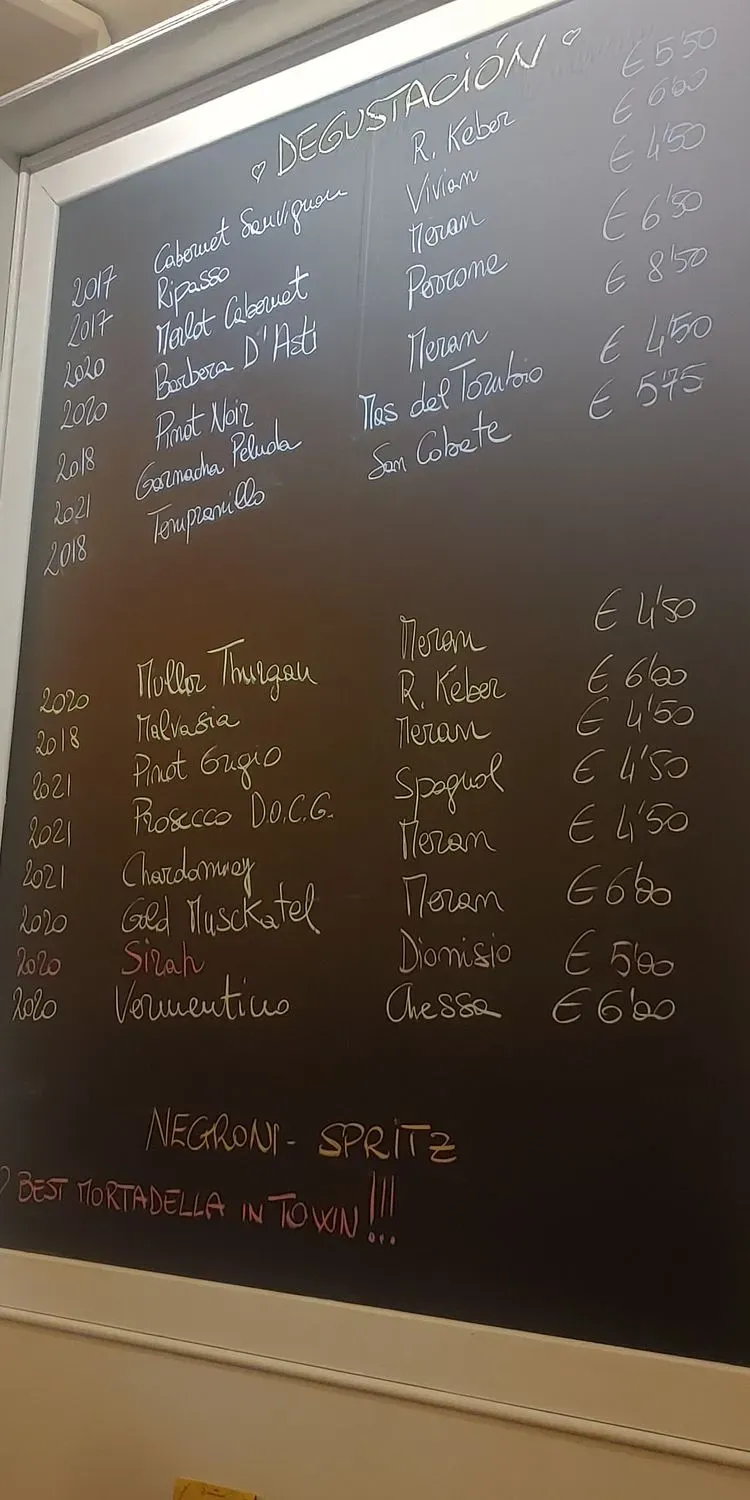 ♡ DEGUSTACIÓN ♡
2017 Cabernet Sauvignon R. Keber € 5'50
2017 Ripasso Vivian € 6'00
2020 Merlot Cabernet Meran € 4'50
2020 Barbera D'Asti Perrone € 6'50
2018 Pinot Noir Meran € 8'50
2021 Garnacha Peluda Mas del € 4'50
2018 Tempranillo San Cobate € 5'75
2020 Muller Thurgau Meran € 4'50
2018 Malvasia R. Keber € 6'00
2021 Pinot Grigio Meran € 4'50
2021 Prosecco D.O.C.G. Spagnol € 4'50
2021 Chardonnay Meran € 4'50
2020 Gold Musckatel Meran € 6'00
2020 Sirah Dionisio € 5'00
2020 Vermentino Chessa € 6'00
NEGRONI - SPRITZ
♡ BEST MORTADELLA IN TOWN!!!